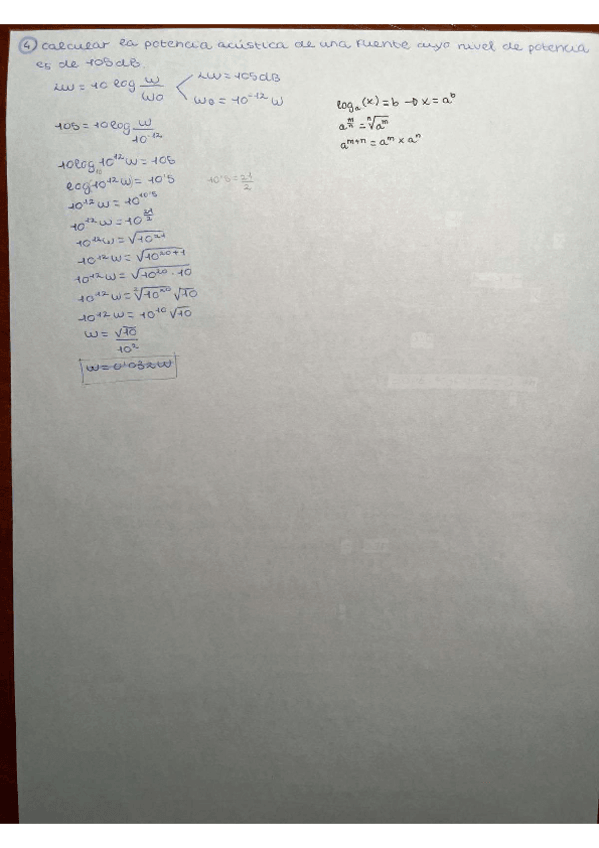 ④ Calcular la potencia acústica de una fuente cuyo nivel de potencia
es de 105 dB.
LW = 10 log W/W0
LW = 105 dB
W0 = 10^-12 W
105 = 10 log W/10^-12
10 log 10^12 W = 105
log 10^12 W = 10'5
10'5 = 21/2
10^12 W = 10^10'5
10^12 W = 10^21/2
10^12 W = √10^21
10^12 W = √10^20+1
10^12 W = √10^20 · 10
10^12 W = ²√10^20 √10
10^12 W = 10^10 √10
W = √10/10^2
W = 0'032 W
log_a (x) = b → x = a^b
a^m/n = ⁿ√a^m
a^m+n = a^m × a^n